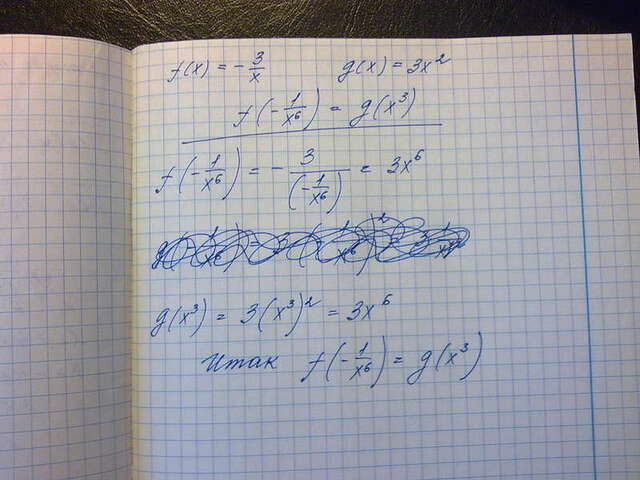 f(x) = - 3/x g(x) = 3x²
f(-1/x⁶) = g(x³)
f(-1/x⁶) = - 3/(-1/x⁶) = 3x⁶
g(x³) = 3(x³)² = 3x⁶
Итак f(-1/x⁶) = g(x³)